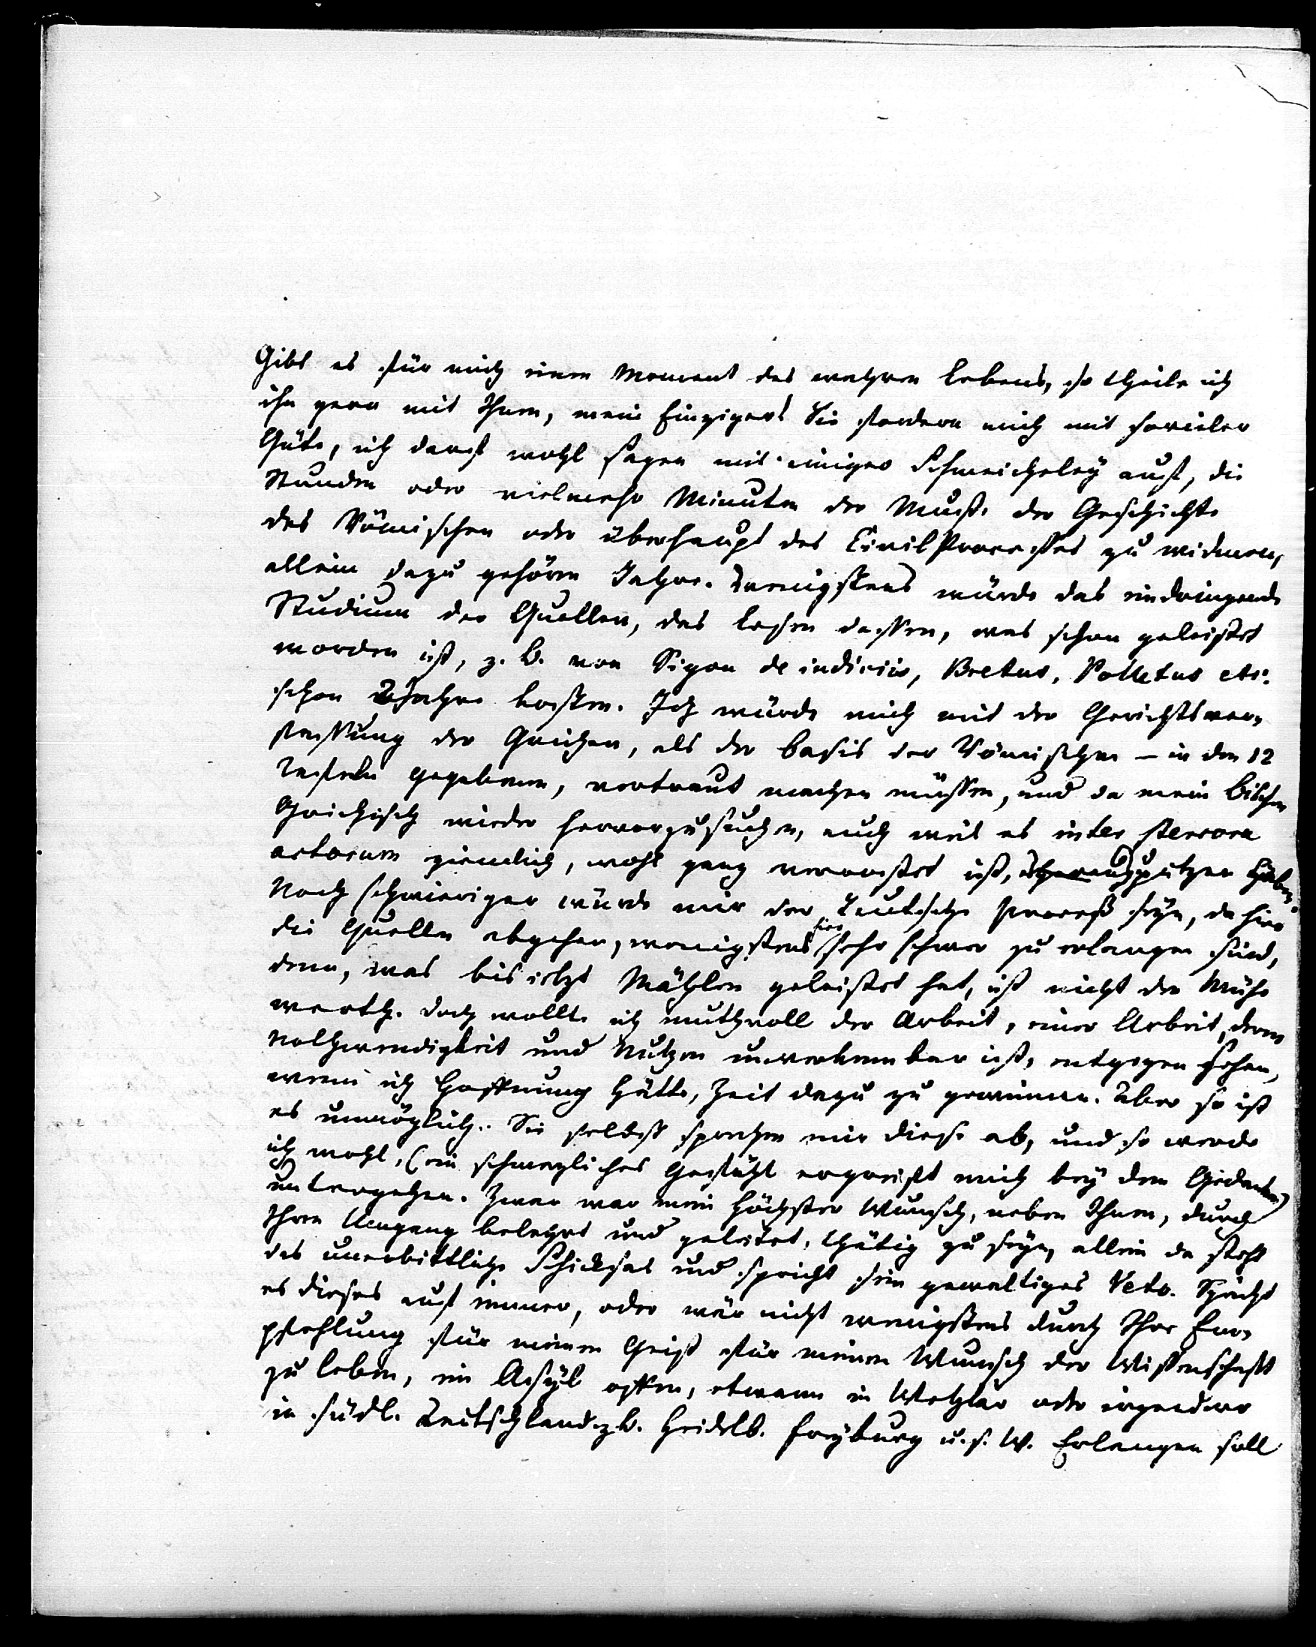 Gibt es für mich einen Moment des wahren Lebens, so theile ich
ihn gern mit Ihnen, mein Einziger! Sie fordern mich mit sovieler
Güte, ich darf wohl sagen mit einiger Schmeicheley auf, die
Stunden oder vielmehr Minuten der Muße der Geschichte
des Römischen oder überhaupt des CivilProcesses zu widmen,
allein dazu gehören Jahre. Wenigstens würde das eindringende
Studium der Quellen, das Lesen dessen, was schon geleistet
worden ist, z. B. von Sigon de indiciis, Polletus etc.
schon 2 Jahre kosten. Ich würde mich mit der Gerichtsver-
fassung der Griechen, als der Basis der Römischen – in den 12
Tafeln gegebenen, vertraut machen müssen, und da mein bischen
Griechisch wieder hervorzusuchen, auch weil es inter
actorum ziemlich, wohl ganz verrostet ist, putzen haben.
Noch schwieriger würde mir der Teutsche Proceß seyn, da hier
die Quellen abgehen, wenigstens hier sehr schwer zu erlangen sind,
denn, was bis jetzt geleistet hat, ist nicht der Mühe
werth. Doch wollte ich muthvoll der Arbeit, einer Arbeit, deren
Nothwendigkeit und Nutzen unverkennbar ist, entgegen sehen,
wenn ich Hoffnung hätte, Zeit dazu zu gewinnen. Aber so ist
es unmöglich. Sie selbst sprechen mir diese ab, und so werde
ich wohl, (ein schmerzliches Gefühl ergreift mich bey dem Gedanken)
untergehen. Zwar war mein höchster Wunsch, neben Ihnen, durch
Ihren Umgang belehrt und geleitet, thätig zu seyn, allein da steht
das unerbittliche Schicksal und spricht sein gewaltiges Veto. Spricht
es dieses auf immer, oder wär nicht wenigstens durch Ihre Em-
pfehlung für meinen Geist für meinen Wunsch der Wissenschaft
zu leben, ein Asyl offen, etwann in Wetzlar oder irgendwo
in südl. Teutschland z. B. Heidelb. Freyburg u. s. w. Erlangen soll